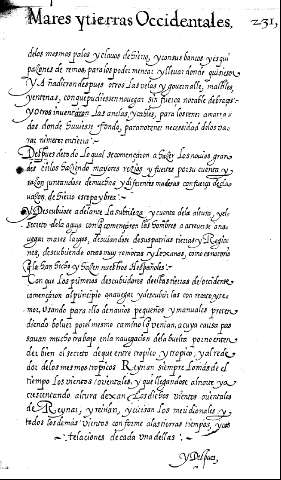 Mares y tierras Occidentales. 231,
delos mesmos palos y clauos de hierro, y con sus bancos y esqui
paZones de remos, para los poder menear y lleuar donde quisiesen
y A ñadieron despues otros las velas y gouernalle, mastiles,
y entenas, con que pudiessen nauegar sin fuerça notable de braços
y otros inuentaron las anclas, y cables, para los tener amarra
dos donde
Despues de todo lo qual se comenÇaron a haZer los nauios gran
des haZiendo mayores y fuertes por su cuenta y
raZon juntandose de muchos y diferentes maderos con fuerça de cla
uazon, de hierro
y Descubriose adelante La subtileza y cuenta dela altura, y el
secreto del aguja con que començaron los hombres a atreuerse a na
uegar mares largos, desuiandose de sus patrias tierras y Regio
nes, descubriendo otras muy remotas y Lexanas, como es notorio
q̃ lo han hecho y haZen nuestros Hespañoles
Con que los primeros descubridores destas tierras de occidente
començaron al principio a nauegar y descubrir las con
mor, Vsando para ello de nauios pequeños y manuales preten
diendo boluer por el mesmo camino q̃ venian, a cuya causa pas
sauan mucho trabajo en la nauegacion dela buelta por no enten
der bien el secreto de que entre tropico y tropico, y al rede
dor delos mesmos tropicos Reynan siempre lo mas de el
tiempo los vientos orientales, y que llegandose al norte y a
crescentando altura dexan Los dichos vientos orientales
de Reynar, y reinan, y cursan los meridionales y
todos los demas vientos conforme alas tierras tiempos, y cos
telaciones de cada vna dellas.
y Despues,